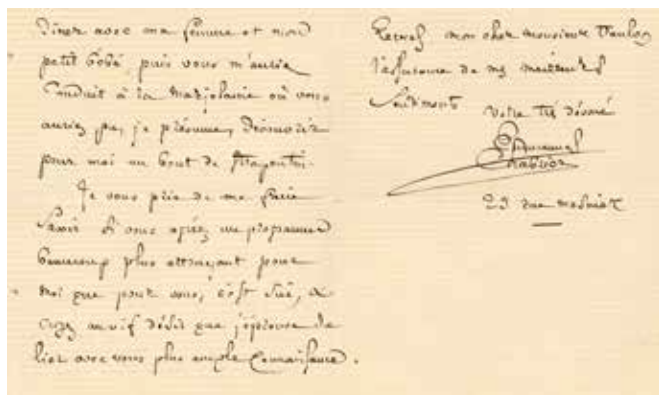 Diner avec ma femme et mon
petit bébé, puis vous m'auriez
conduit à la Marjolaine où vous
auriez pu, je présume, découvrir
pour moi un bout de strapontin.
Je vous prie de me faire
savoir si vous agréez un programme
beaucoup plus attrayant pour
moi que pour vous, c'est sûr, &
croyez au vif désir que j'éprouve de
lier avec vous plus ample connaissance.
mon cher Monsieur Vaulon
l'assurance de mes meilleurs
sentiments
votre très dévoué
Emmanuel
Chabrier
23 rue Mosnier